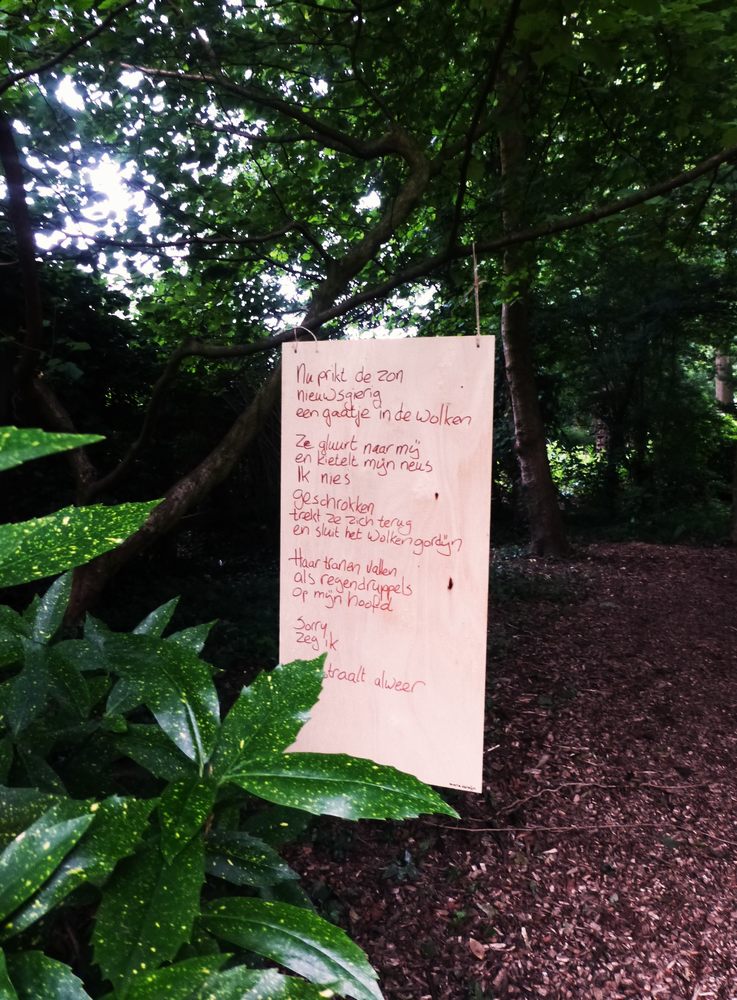 Nu prikt de zon
nieuwsgierig
een gaatje in de wolken
Ze gluurt naar mij
en kietelt mijn neus
Ik nies
geschrokken
trekt ze zich terug
en sluit het wolkengordijn
Haar tranen vallen
als regendruppels
op mijn hoofd
Sorry
zeg ik
straalt alweer